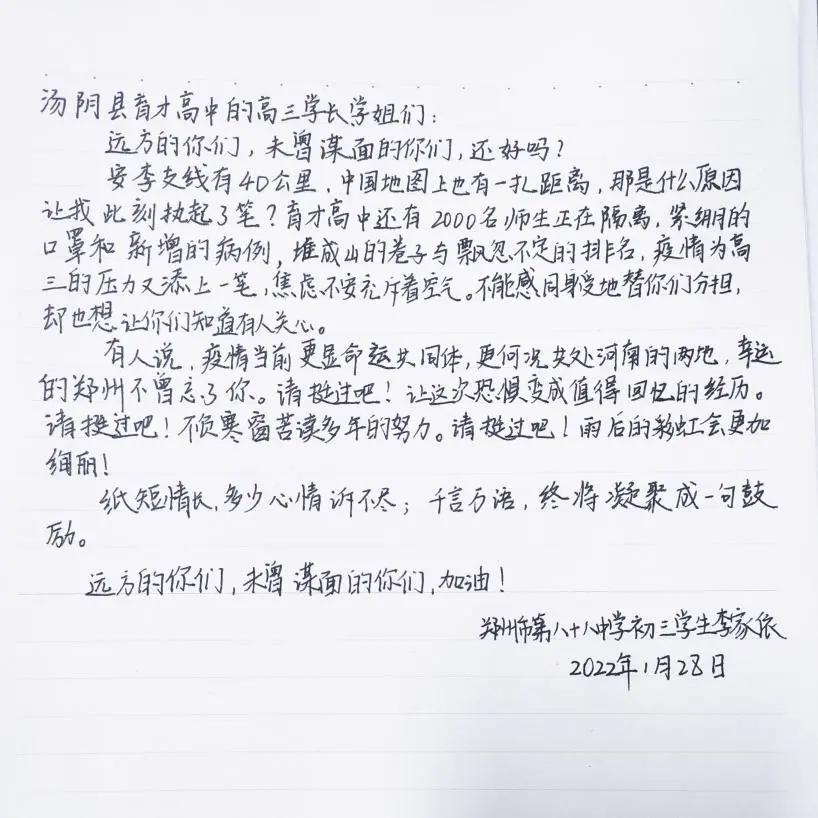 汤阴县育才高中的高三学长学姐们：
远方的你们，未曾谋面的你们，还好吗？
安李支线有40公里，中国地图上也有一扎距离，那是什么原因
让我此刻执起了笔？育才高中还有2000名师生正在隔离，紧绷的
口罩和新增的病例，堆成山的卷子与飘忽不定的排名，疫情为高
三的压力又添上一笔，焦虑不安充斥着空气。不能感同身受地替你们分担，
却也想让你们知道有人关心。
有人说，疫情当前更显命运共同体，更何况共处河南的两地，幸运
的郑州不曾忘了你。请挺过吧！让这次恐惧变成值得回忆的经历。
请挺过吧！不负寒窗苦读多年的努力。请挺过吧！雨后的彩虹会更加
绚丽！
纸短情长，多少心情诉不尽；千言万语，终将凝聚成一句鼓
励。
远方的你们，未曾谋面的你们，加油！
郑州市第八十八中学初三学生李家依
2022年1月28日